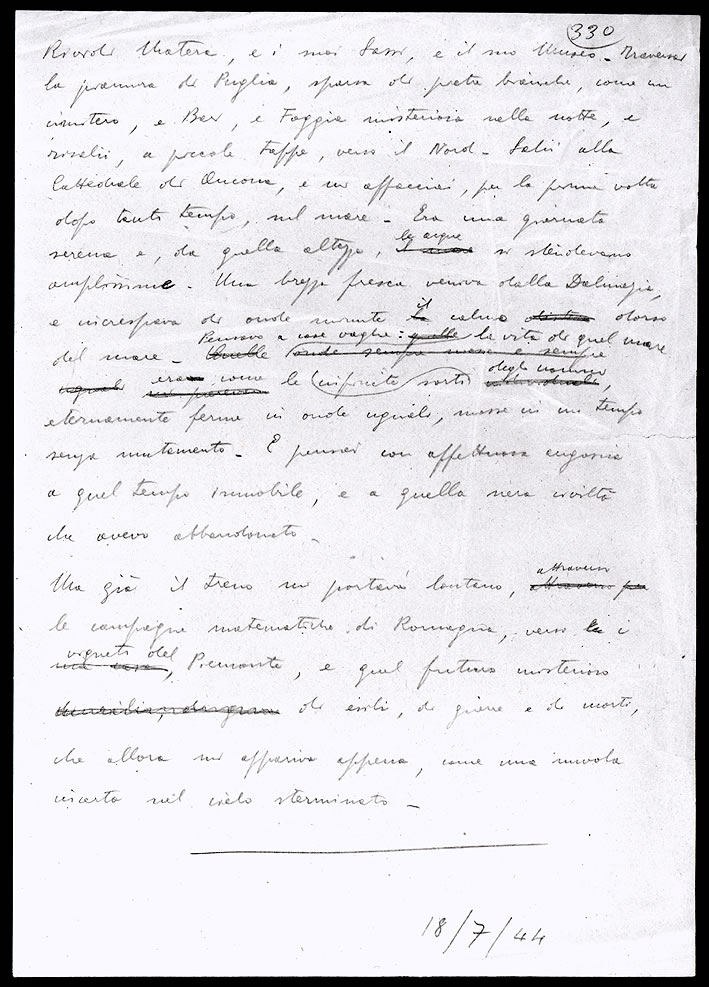 330
Rividi Matera, e i suoi Sassi, e il suo Museo - Traversai
la pianura di Puglia, sparsa di pietre bianche, come un
cimitero, e Bari, e Foggia misteriosa nella notte, e
risalii, a piccole tappe, verso il Nord - Salii alla
Cattedrale di Ancona, e mi affacciai, per la prima volta
dopo tanto tempo, sul mare - Era una giornata
serena, e, da quella altezza, le acque si stendevano
amplissime - Una brezza fresca veniva dalla Dalmazia,
e increspava di onde minute il calmo dorso
del mare - Pensavo a cose vaghe: la vita di quel mare
era come le infinite sorti degli uomini,
eternamente ferme in onde uguali, mosse in un tempo
senza mutamento - E pensai con affettuosa angoscia
a quel tempo immobile, e a quella nera civiltà
che avevo abbandonato -
Ma già il treno mi portava lontano, attraverso
le campagne matematiche di Romagna, verso i
vigneti del Piemonte, e quel futuro misterioso
di esili, di guerre e di morti,
che allora mi appariva appena, come una nuvola
incerta nel cielo sterminato -
18/7/44